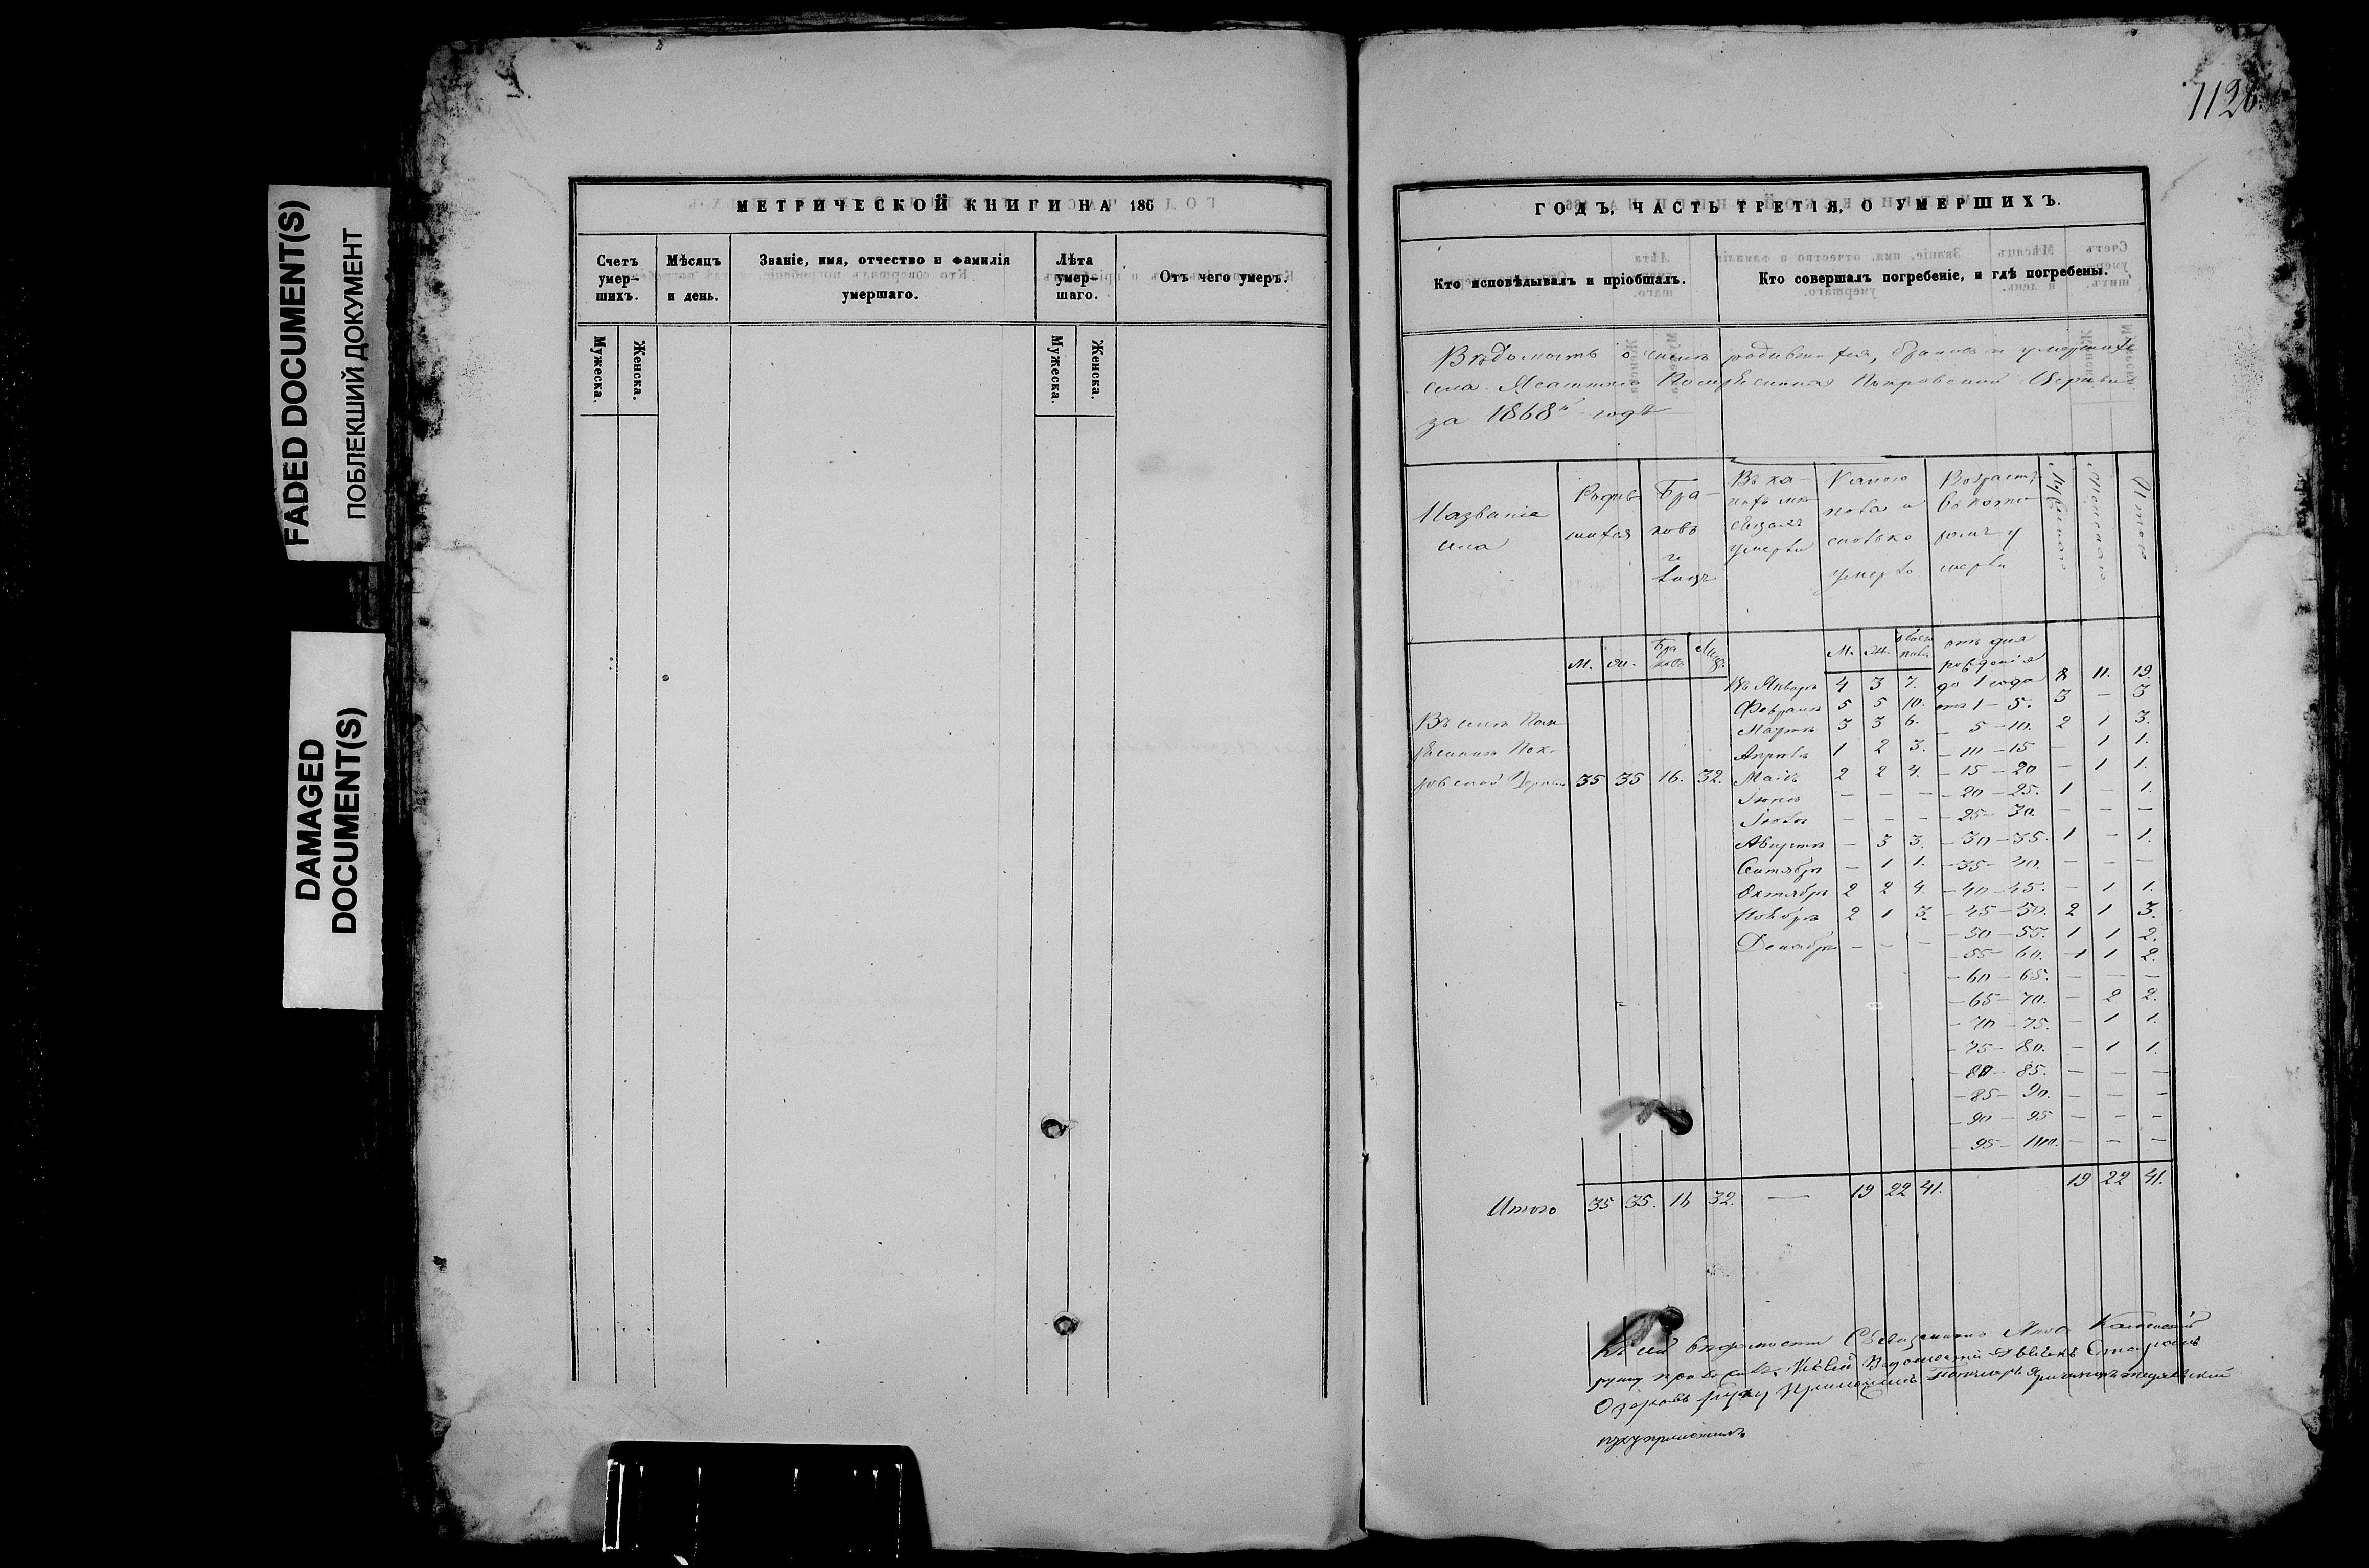 FADED DOCUMENT(S)
ПОБЛЕКШИЙ ДОКУМЕНТ
DAMAGED
DOCUMENT(S)
МЕТРИЧЕСКОЙ КНИГИ НА 186
Счетъ умер-шихъ.
Мѣсяцъ и день.
Званіе, имя, отчество и фамилія умершаго.
Лѣта умер-шаго.
Отъ чего умеръ.
Мужеска.
Женска.
Мужеска.
Женска.
1126.
ГОДЪ, ЧАСТЬ ТРЕТІЯ, О УМЕРШИХЪ.
Кто исповѣдывалъ и пріобщалъ.
Кто совершалъ погребеніе, и гдѣ погребены.
Вѣдомость о числѣ родившихся, браковъ и умершихъ
села Покровской Церкви
за 1868й годъ
Названіе села
Родив-шихся
Бра-ковъ и лицъ
Въ ка-кихъ мѣ-сяцахъ умерли
Какого пола и сколько умерло
Возрастъ въ кото-ромъ у-мерли
Мужскаго
Женскаго
Итого
М. Ж. Бра-ковъ Лицъ М. Ж. обоего пола отъ дня рожденія
Въ Январѣ 4 3 7. до 1 года 8 11. 19.
Февралѣ 5 5 10. отъ 1 - 5. 3 - 3
Мартѣ 3 3 6. - 5 - 10. 2 1 3.
Апрѣлѣ 1 2 3. - 10 - 15 - 1 1.
Въ селѣ Покровской Церкви 35 35 16. 32. Маіѣ 2 2 4. - 15 - 20 - 1 1.
Іюнѣ - - - - 20 - 25. 1 - 1.
Іюлѣ - - - - 25 - 30. - - -
Августѣ - 3 3. - 30 - 35. 1 - 1.
Сентябрѣ - 1 1. - 35 - 40. - - -
Октябрѣ 2 2 4. - 40 - 45. - 1 1.
Ноябрѣ 2 1 3. - 45 - 50. 2 1 3.
Декабрѣ - - - - 50 - 55. 1 1 2.
- 55 - 60. 1 1 2.
- 60 - 65. - - -
- 65 - 70. - 2 2.
- 70 - 75. - 1 1.
- 75 - 80. - 1 1.
- 80 - 85. - - -
- 85 - 90. - - -
- 90 - 95 - - -
- 95 - 100. - - -
Итого 35 35. 16 32. - 19 22 41. 19 22 41.
Къ сей вѣдомости Священникъ Каменскій
руку приложилъ
руку приложилъ Пономарь
руку приложилъ